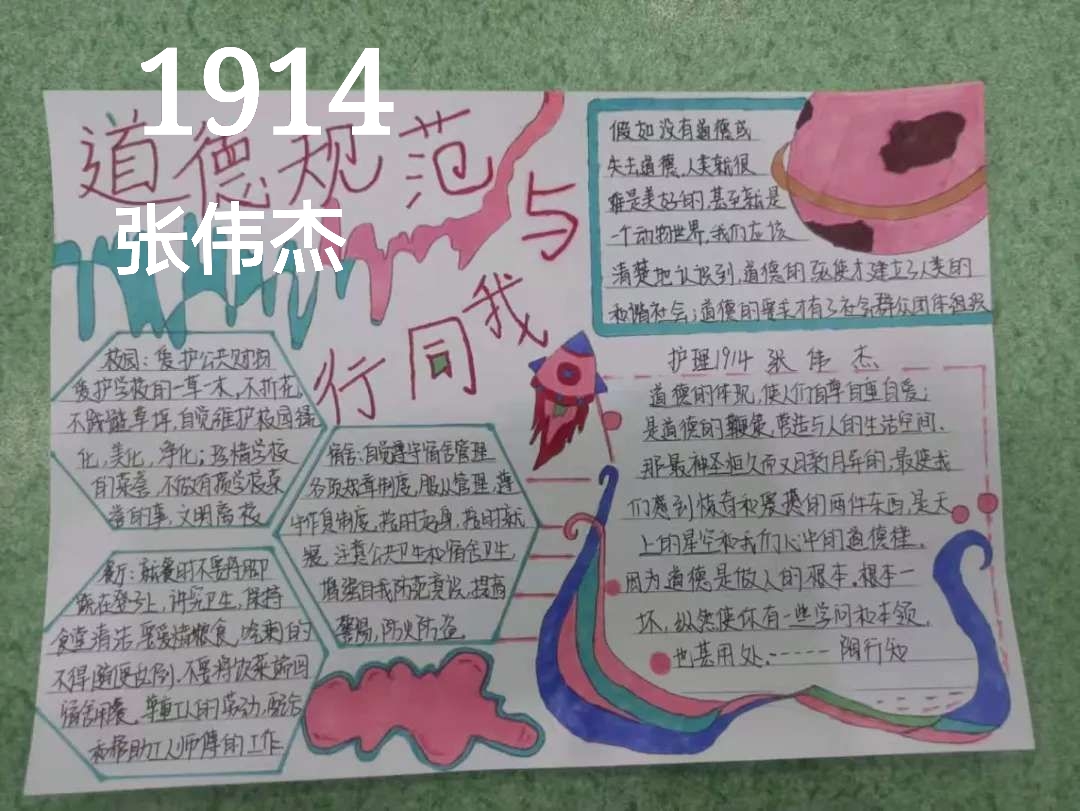 1914
张伟杰
道德规范
与
我
同
行
假如没有道德或
失去道德,人类就很
难是美好的,甚至就是
一个动物世界,我们应该
清楚地认识到,道德的驱使才建立了人类的
和谐社会;道德的要求才有了社会群众团体组织
护理1914 张伟杰
道德的体现,使人们自尊自重自爱;
是道德的鞭策,营造与人的生活空间.
那最神圣恒久而又日新月异的,最使我
们感到惊奇和震撼的两件东西,是天
上的星空和我们心中的道德律.
因为道德是做人的根本.根本一
坏,纵然使你有一些学问和本领,
也甚用处.------陶行知
校园:爱护公共财物
爱护学校的一草一木,不折花,
不践踏草坪,自觉维护校园绿
化,美化,净化;珍惜学校
的荣誉,不做有损学校荣
誉的事,文明离校
宿舍:自觉遵守宿舍管理
各项规章制度,服从管理,遵
守作息制度,按时起身,按时就
寝,注意公共卫生和宿舍卫生
增强自我防范意识,提高
警惕,防火防盗
餐厅:就餐时不要将脚
踩在凳子上,讲究卫生,保持
食堂清洁,要爱惜粮食,吃剩的
不得随便乱倒.不要将饭菜端回
宿舍用餐,尊重工人的劳动,配合
和帮助工人师傅的工作